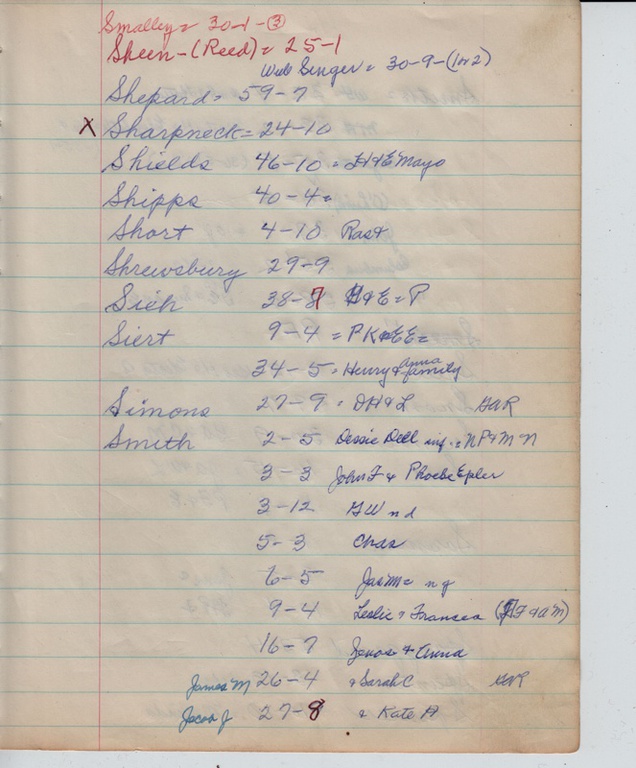 Smalley = 30-1-③
Sheen-(Reed) = 25-1
Web Singer = 30-9-(1or2)
Shepard = 59-7
X Sharpneck = 24-10
Shields 46-10 = H+E Mayo
Shipps 40-4=
Short 4-10 Rast
Shrewsbury 29-9
Sieh 38-7 H+E=P
Siert 9-4 = PK+EE=
34-5 = Henry + Anna family
Simons 27-9 = DH+L GAR
Smith 2-5 Dessie Dell inf.=NP+MN
3-3 John F + Phoebe Epler
3-12 GW nd
5-3 Chas
6-5 Jas M=
9-4 Leslie + Frances (JF+AM)
16-7 Zenas + Anna
James M 26-4 + Sarah C GAR
Jacob J 27-8 + Kate A